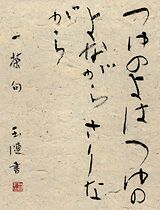 つゆのよはつゆの
よながらさりな
がら
一茶句
書